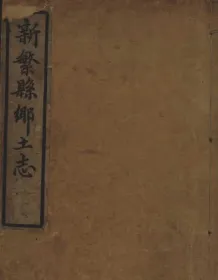 新繁縣鄉土志